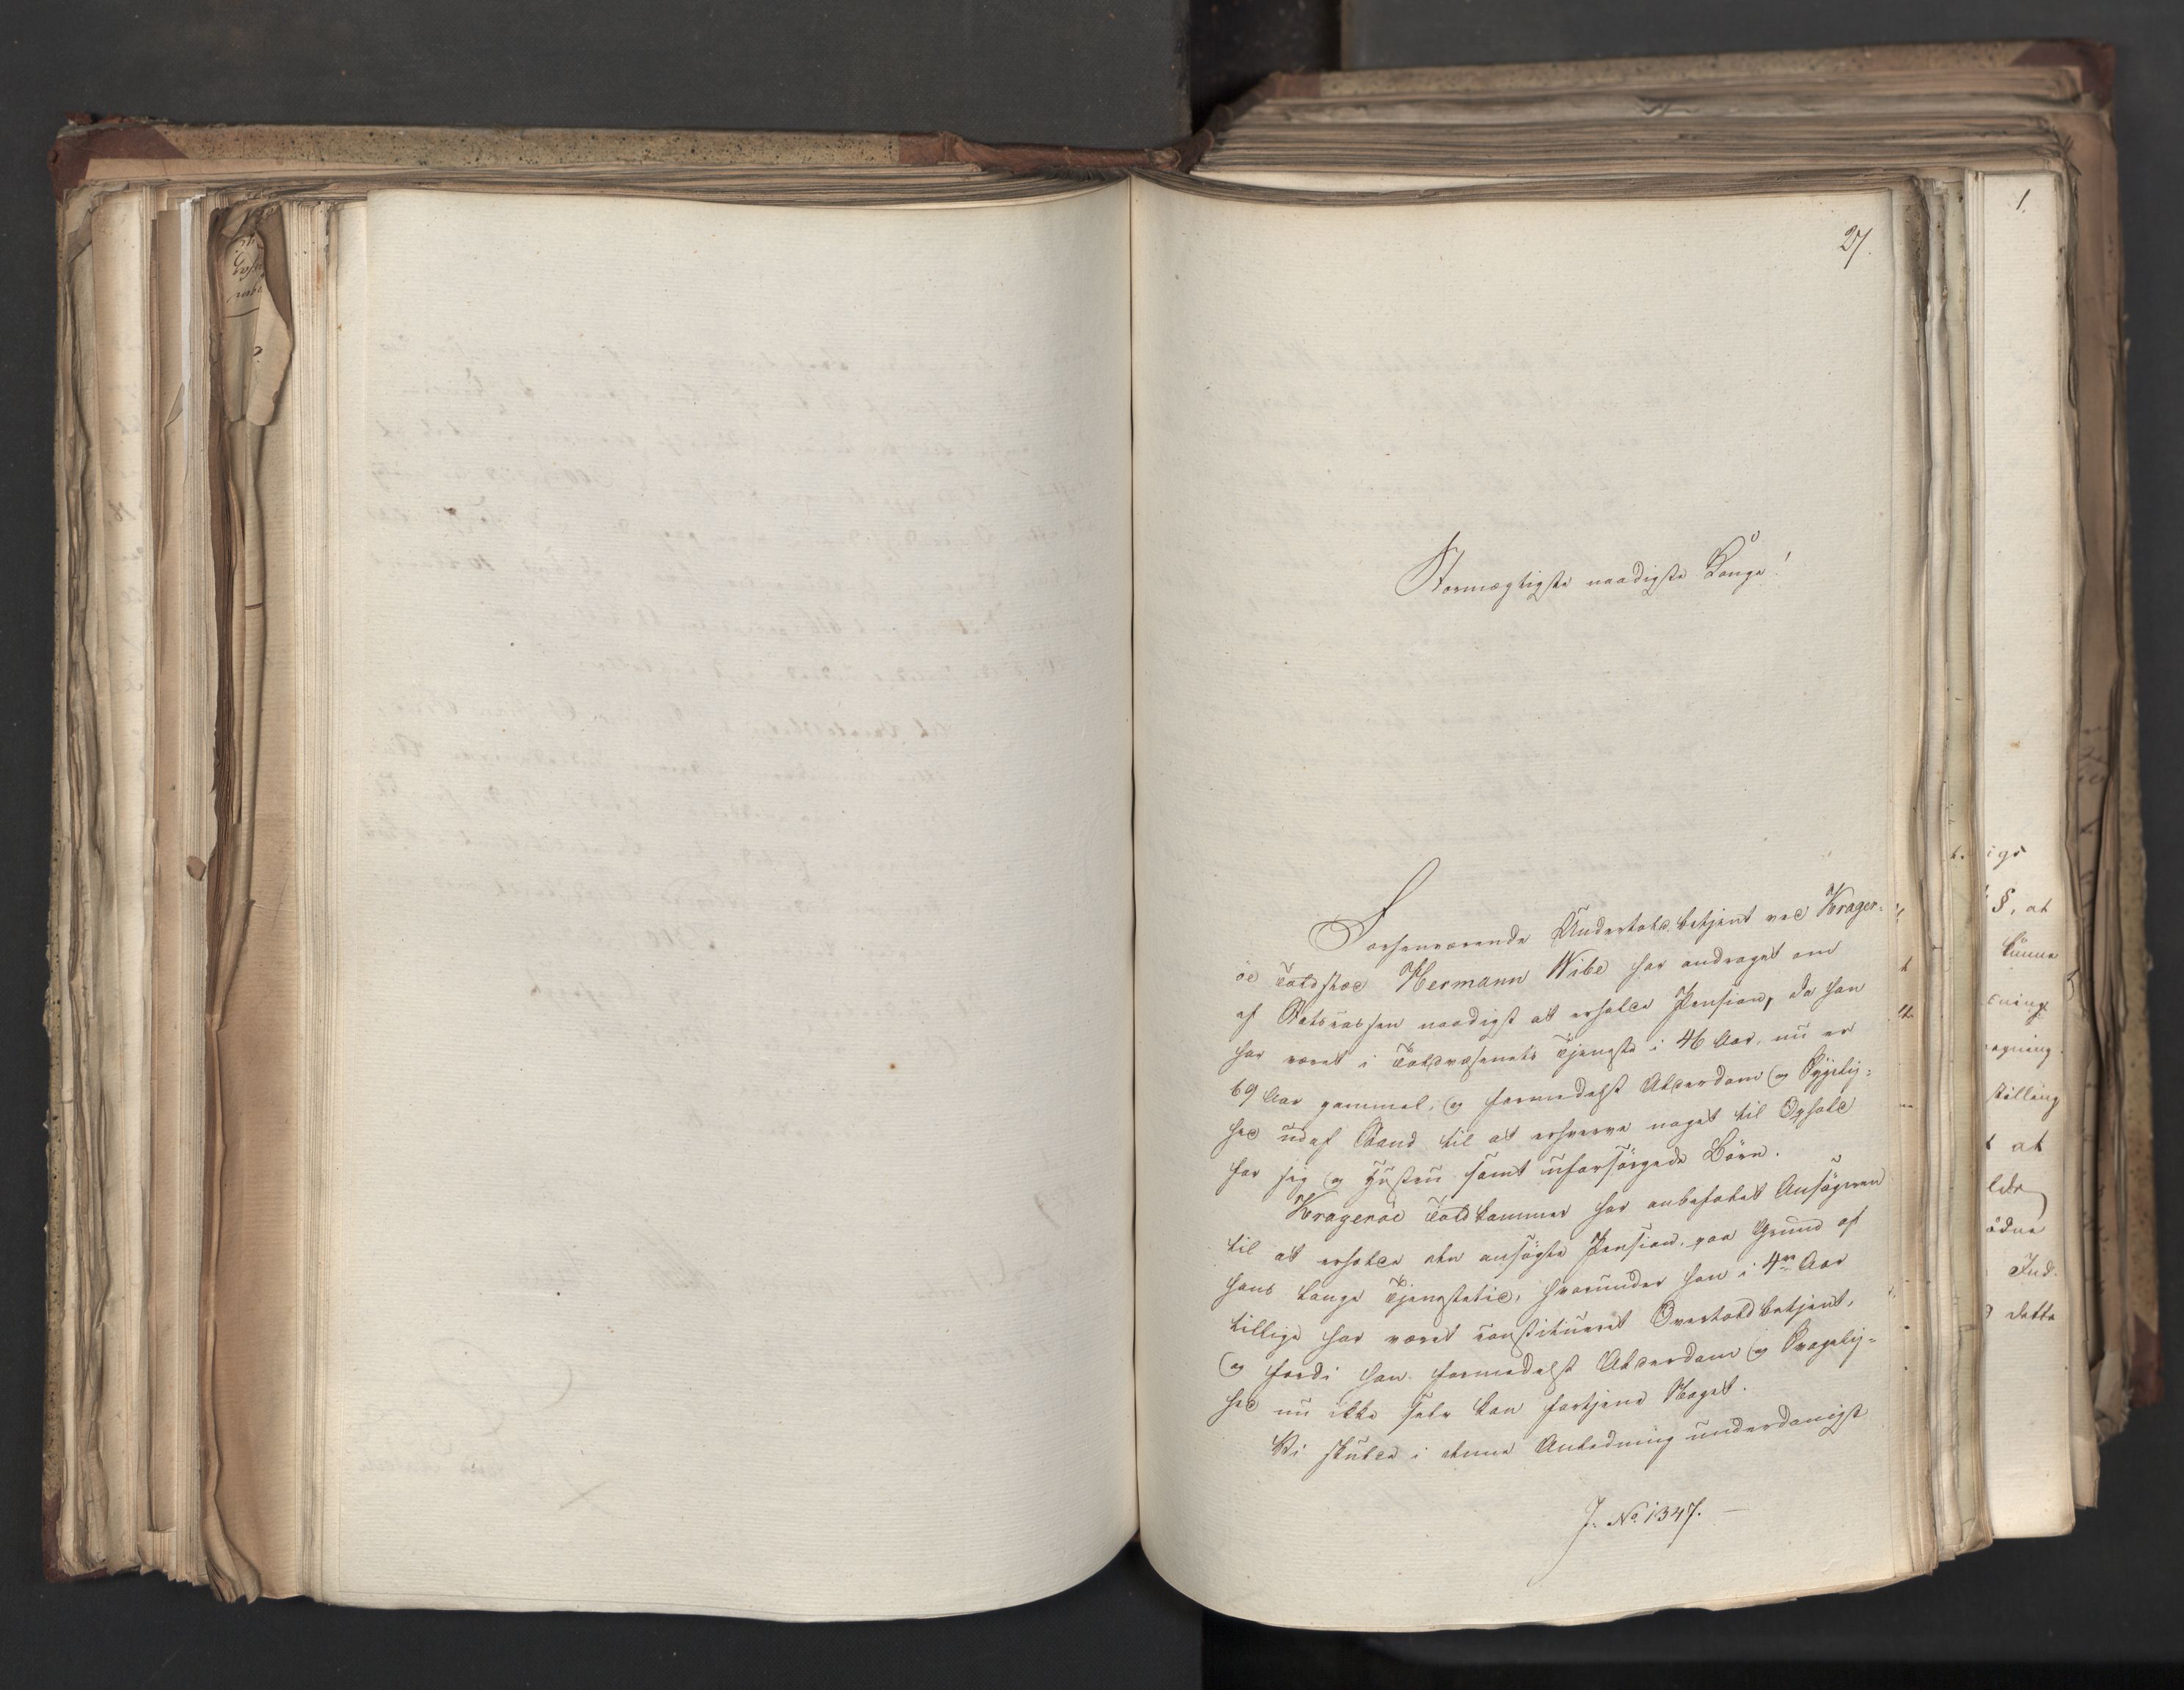 27.
Stormægtigste naadigste Konge!
Forhenværende Undertoldbetjent ved Krager-
öe Toldsted Hermann Wibe har andraget om
af Statscassen naadigst at erholde Pension, da han
har været i Toldvæsenets Tjeneste i 46 Aar, nu er
69 Aar gammel, og formedelst Alderdom og Sygelig-
hed udaf Stand til at erhverve noget til Ophold
for sig og Hustru samt uforsörgede Börn.
Krageröe Toldkammer har anbefalet Ansögeren
til at erholde den ansögte Pension, paa Grund af
hans lange Tjenestetid, hvorunder han i 4re Aar
tillige har været constitueret Overtoldbetjent,
og fordi han formedelst Alderdom og Svagelig-
hed nu ikke selv kan fortjene Noget.
Vi skulde i denne Anledning underdanigst
J. No. 1347.
1.
§, at
kunne
stilling
at
Ind-
dette